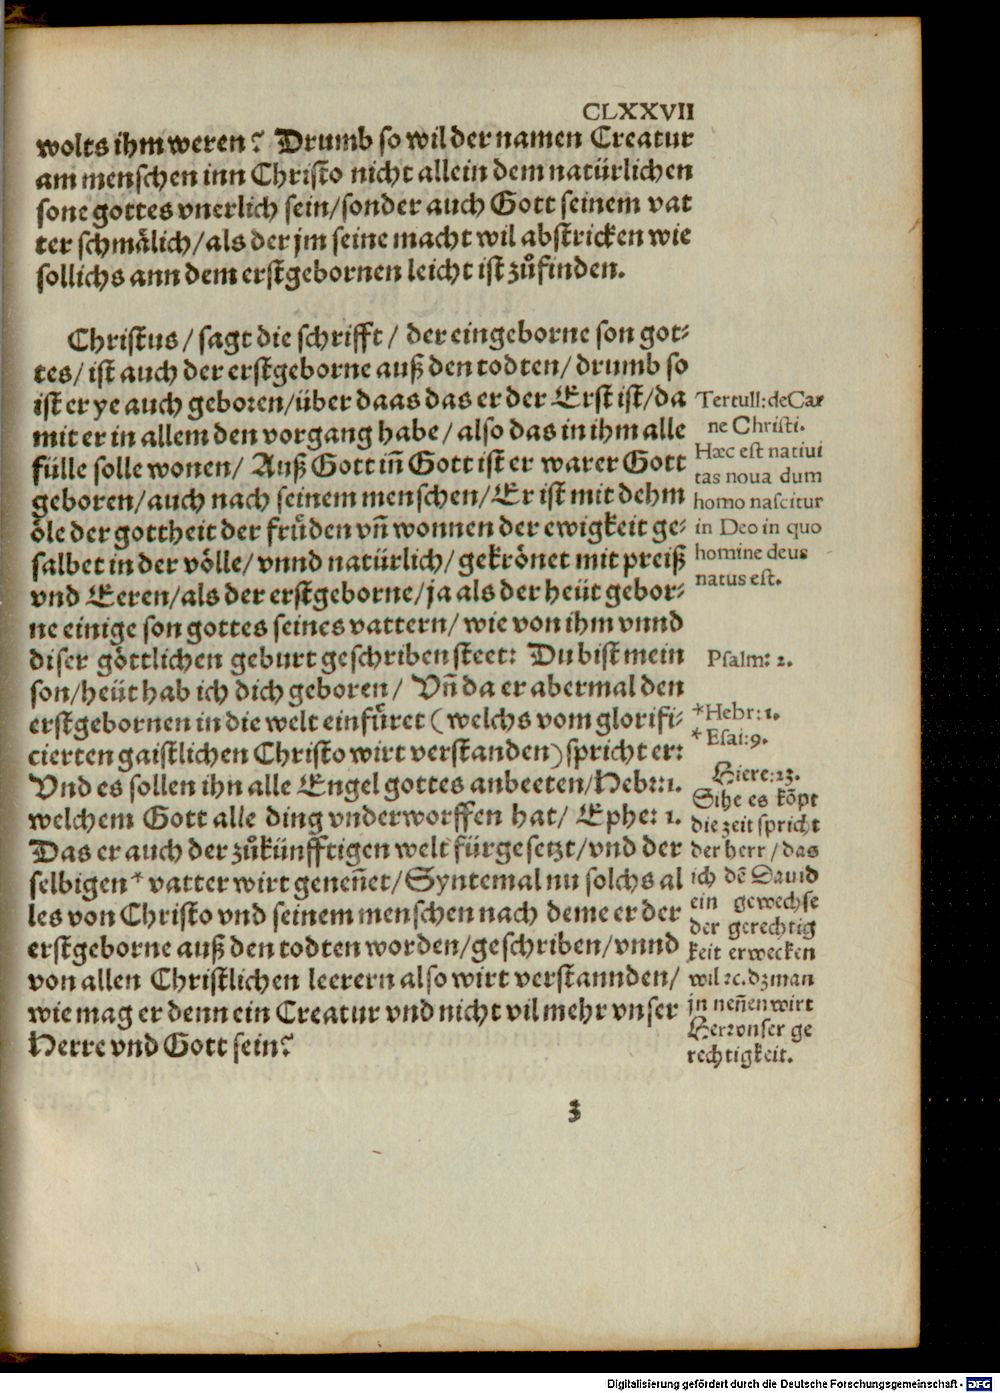 CLXXVII
wolts ihm weren? Drumb so wil der namen Creatur
am menschen inn Christo nicht allein dem natürlichen
sone gottes vnerlich sein/sonder auch Gott seinem vat
ter schmälich/als der jm seine macht wil abstricken wie
sollichs ann dem erstgebornen leicht ist zůfinden.
Christus/sagt die schrifft/ der eingeborne son got-
tes/ist auch der erstgeborne auß den todten/drumb so
ist er ye auch geboren/über daas das er der Erst ist/da
mit er in allem den vorgang habe/also das in ihm alle
fülle solle wonen/ Auß Gott in̄ Gott ist er warer Gott
geboren/auch nach seinem menschen/Er ist mit dehm
öle der gottheit der frůden vn̄ wonnen der ewigkeit ge-
salbet in der völle/vnnd natürlich/gekrönet mit preiß
vnd Eeren/als der erstgeborne/ja als der heüt gebor-
ne einige son gottes seines vattern/wie von ihm vnnd
diser göttlichen geburt geschriben steet: Du bist mein
son/heüt hab ich dich geboren/ Vn̄ da er abermal den
erstgebornen in die welt einfůret (welchs vom glorifi-
cierten gaistlichen Christo wirt verstanden) spricht er:
Vnd es sollen ihn alle Engel gottes anbeeten/Hebr: 1.
welchem Gott alle ding vnderworffen hat/ Ephe: 1.
Das er auch der zůkünfftigen welt fürgesetzt/vnd der
selbigen* vatter wirt genen̄et/Syntemal nu solchs al
les von Christo vnd seinem menschen nach deme er der
erstgeborne auß den todten worden/geschriben/vnnd
von allen Christlichen leerern also wirt verstannden/
wie mag er denn ein Creatur vnd nicht vil mehr vnser
Herre vnd Gott sein?
Tertull: de Car
ne Christi.
Hæc est nativi
tas nova dum
homo nascitur
in Deo in quo
homine deus
natus est.
Psalm: 2.
*Hebr: 1.
*Esai: 9.
Hiere: 23.
Sihe es kōpt
die zeit spricht
der herr/das
ich dē Dauid
ein gewechse
der gerechtig
keit erwecken
wil ꝛc. dz man
jn nen̄en wirt
Herr vnser ge
rechtigkeit.
3
Digitalisierung gefördert durch die Deutsche Forschungsgemeinschaft - DFG